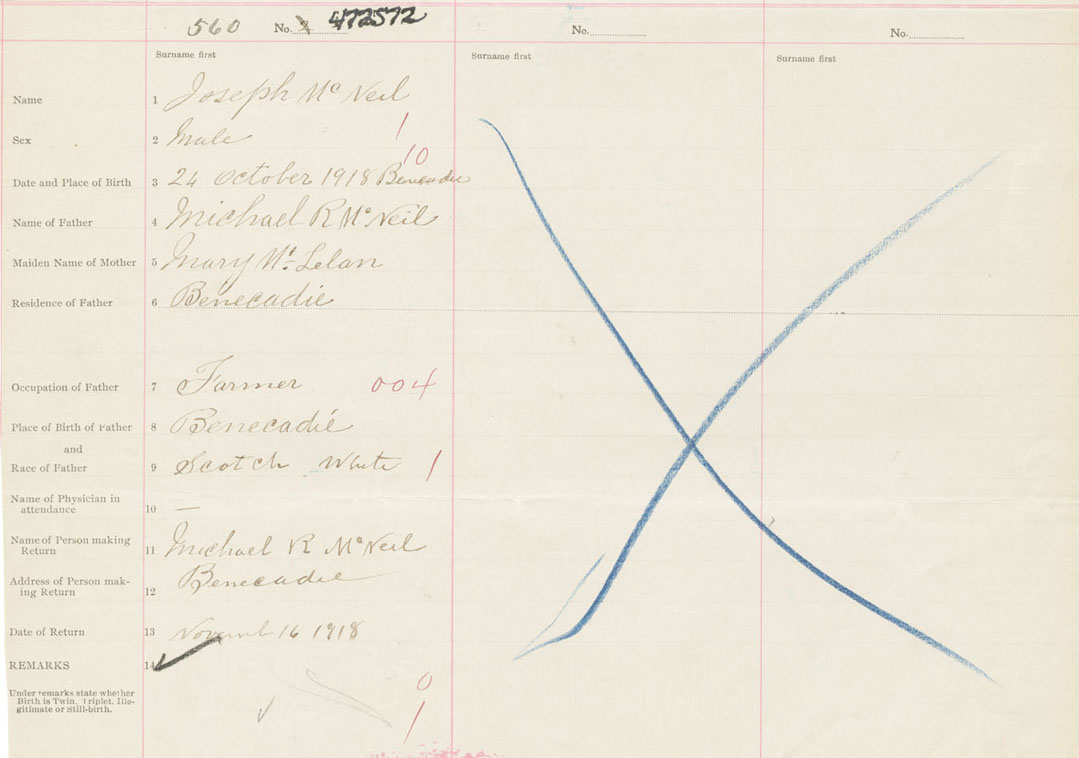 560 No. 2 472572 No. No.
Surname first Surname first Surname first
Name 1 Joseph Mc Neil
Sex 2 Male 1
10
Date and Place of Birth 3 24 October 1918 Benecadie
Name of Father 4 Michael R Mc Neil
Maiden Name of Mother 5 Mary Mc Lelan
Residence of Father 6 Benecadie
Occupation of Father 7 Farmer 004
Place of Birth of Father 8 Benecadie
and
Race of Father 9 Scotch White 1
Name of Physician in
attendance 10 —
Name of Person making
Return 11 Michael R McNeil
Address of Person mak-
ing Return 12 Benecadie
Date of Return 13 Novemb 16 1918
REMARKS 14
Under remarks state whether
Birth is Twin, Triplet, Ille-
gitimate or Still-birth.
0
1